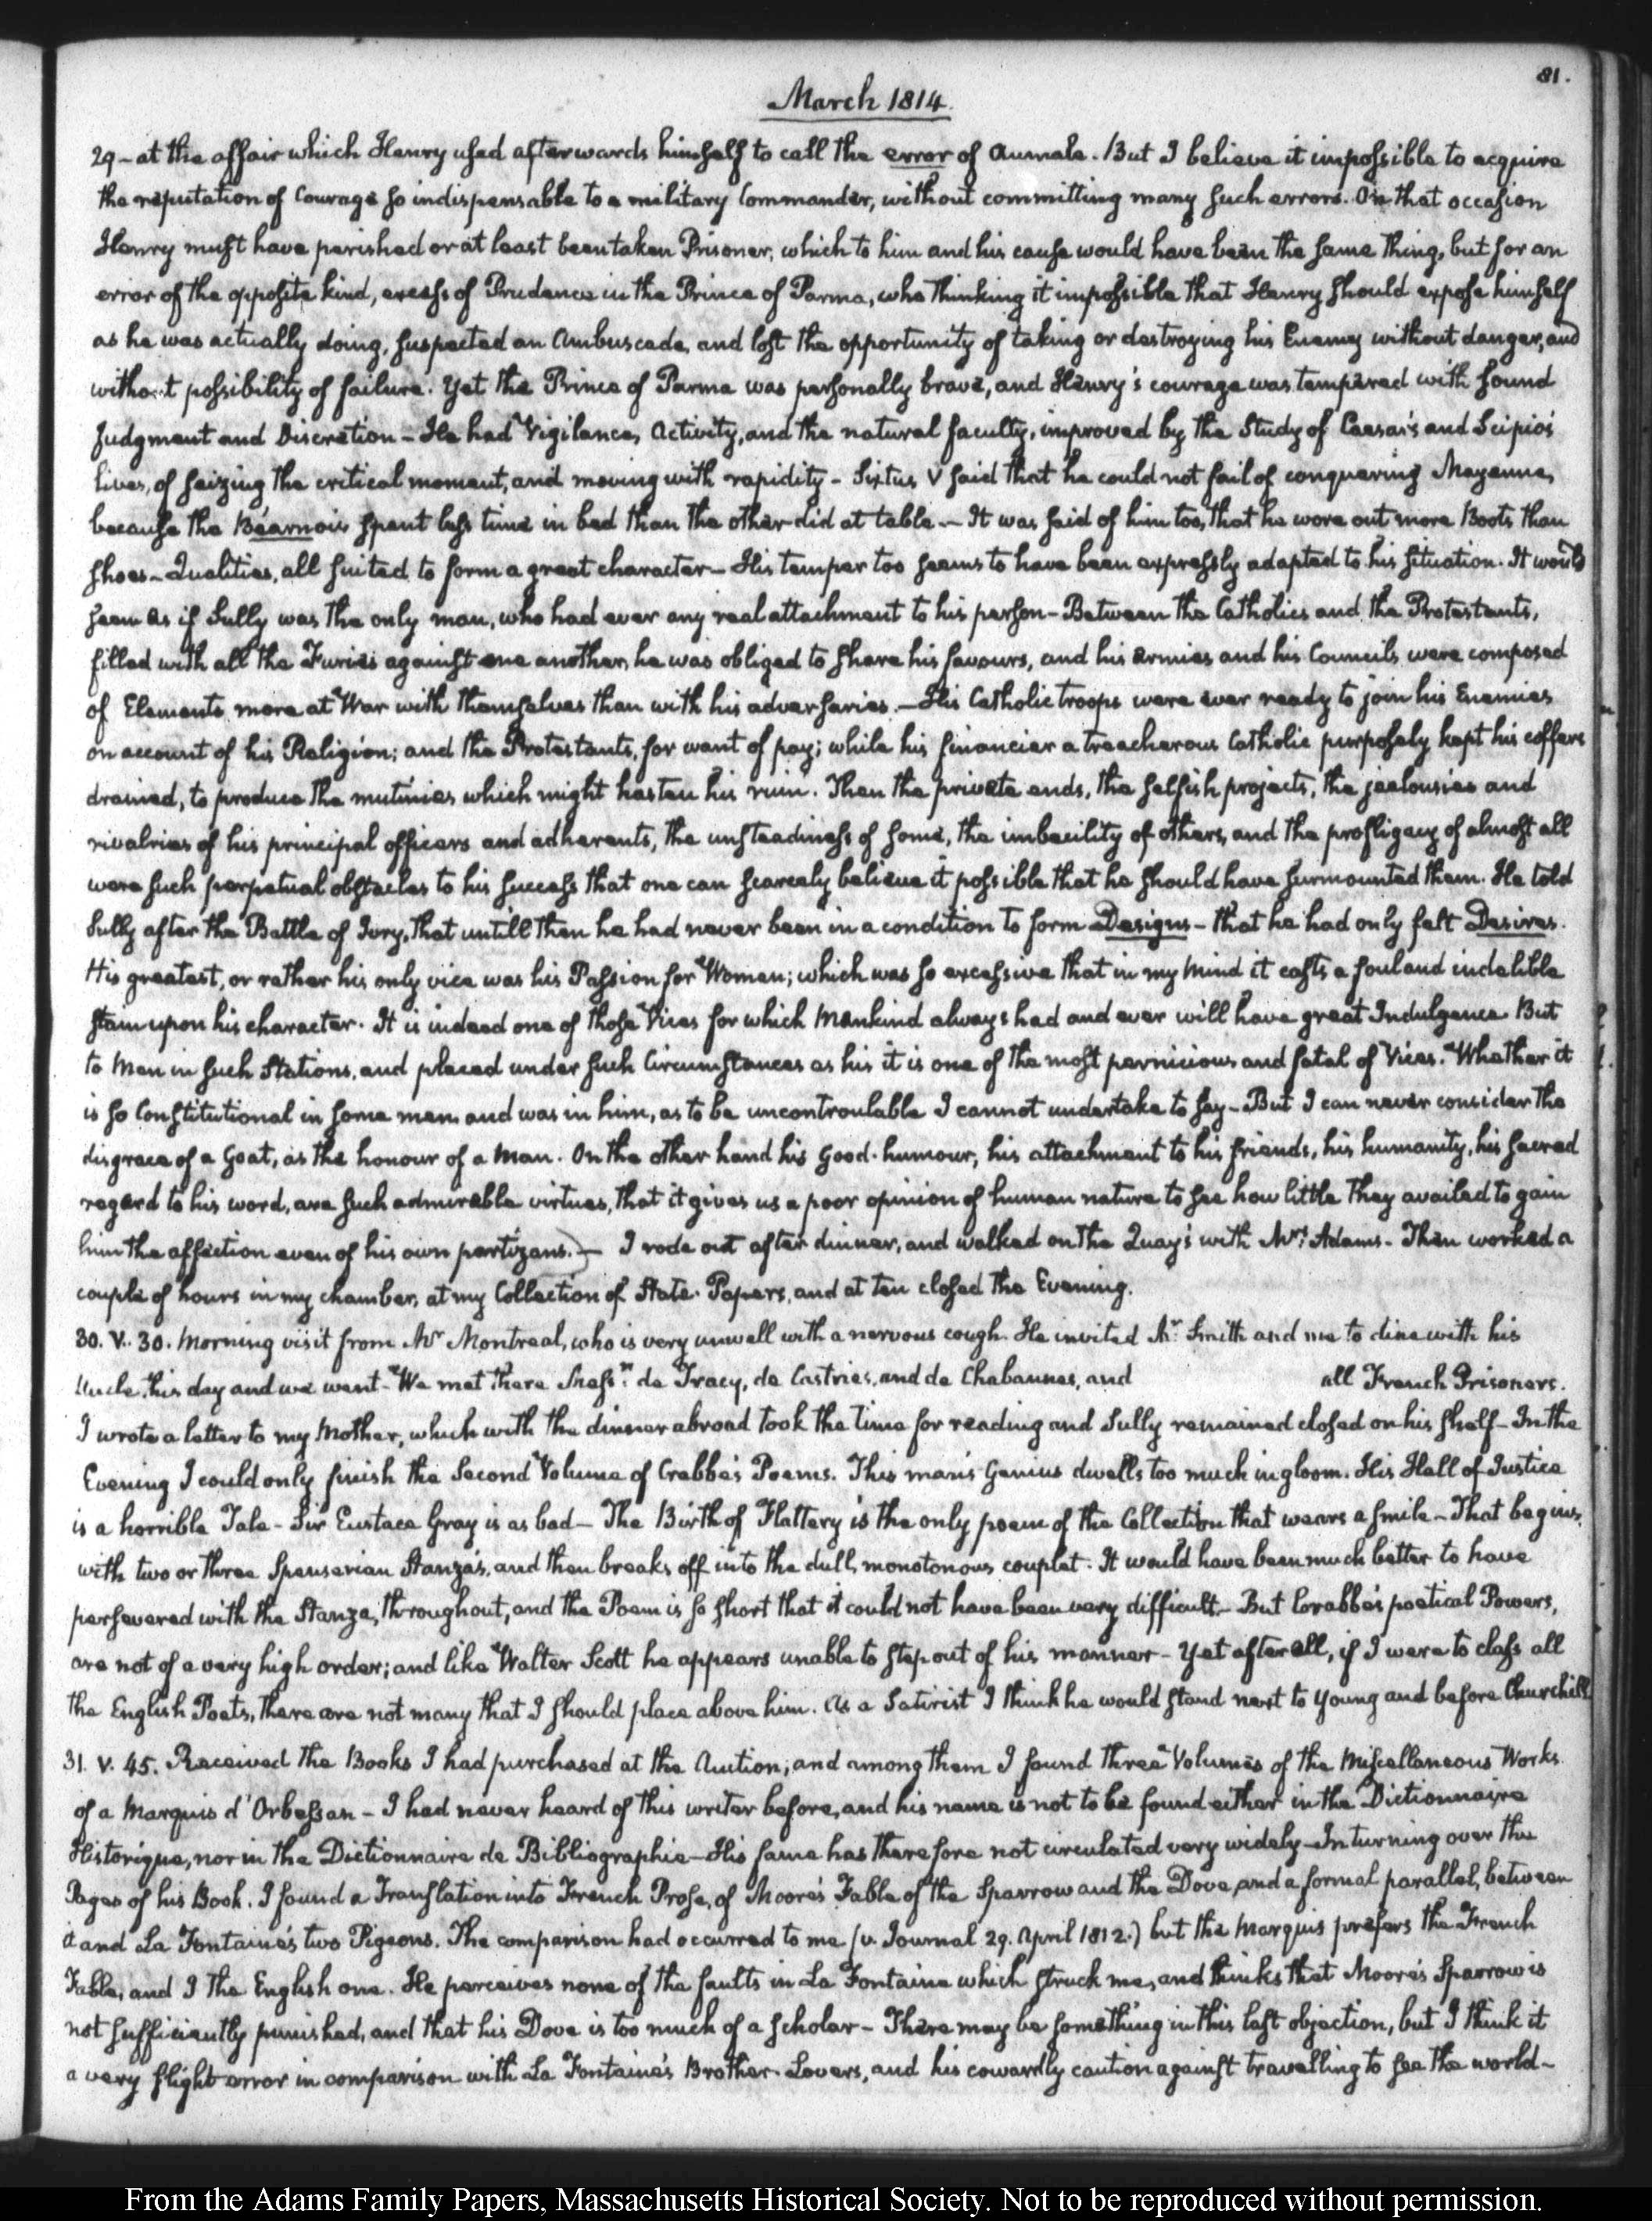 81.
March 1814.
29 - at the affair which Henry used afterwards himself to call the error of Aumale. But I believe it impossible to acquire
the reputation of Courage so indispensable to a military Commander, without committing many such errors. On that occasion
Henry must have perished or at least been taken Prisoner, which to him and his cause would have been the same thing, but for an
error of the opposite kind, excess of Prudence in the Prince of Parma, who thinking it impossible that Henry should expose himself
as he was actually doing, suspected an Ambuscade, and lost the opportunity of taking or destroying his Enemy without danger, and
without possibility of failure. Yet the Prince of Parma was personally brave, and Henry's courage was tempered with sound
Judgment and Discretion - He had Vigilance, Activity, and the natural faculty, improved by the Study of Caesar's and Scipio's
lives, of seizing the critical moment, and moving with rapidity - Sixtus V said that he could not fail of conquering Mayenne,
because the Béarnois spent less time in bed than the other did at table. - It was said of him too, that he wore out more Boots than
shoes - Qualities, all suited to form a great character - His temper too seems to have been expressly adapted to his situation. It would
seem as if Sully was the only man, who had ever any real attachment to his person - Between the Catholics and the Protestants,
filled with all the Furies against one another, he was obliged to share his favours, and his armies and his Councils were composed
of Elements more at War with themselves than with his adversaries. - His Catholic troops were ever ready to join his Enemies
on account of his Religion; and the Protestants, for want of pay; while his financier a treacherous Catholic purposely kept his coffers
drained, to produce the mutinies which might hasten his ruin. Then the private ends, the selfish projects, the jealousies and
rivalries of his principal officers and adherents, the unsteadiness of some, the imbecility of others, and the profligacy of almost all
were such perpetual obstacles to his success that one can scarcely believe it possible that he should have surmounted them. He told
Sully after the Battle of Ivry, that untill then he had never been in a condition to form Designs - that he had only felt Desires.
His greatest, or rather his only vice was his Passion for Women; which was so excessive that in my mind it casts a foul and indelible
stain upon his character. It is indeed one of those Vices for which Mankind always had and ever will have great Indulgence. But
to Men in such Stations, and placed under such Circumstances as his it is one of the most pernicious and fatal of Vices. Whether it
is so Constitutional in some men and was in him, as to be uncontroulable I cannot undertake to say - But I can never consider the
disgrace of a Goat, as the honour of a Man. On the other hand his Good-humour, his attachment to his friends, his humanity, his sacred
regard to his word, are such admirable virtues, that it gives us a poor opinion of human nature to see how little they availed to gain
him the affection even of his own partizans.) - I rode out after dinner, and walked on the Quay's with Mrs. Adams. Then worked a
couple of hours in my chamber, at my Collection of State-Papers, and at ten closed the Evening.
30. V. 30. Morning visit from Mr. Montreal, who is very unwell with a nervous cough. He invited Mr. Smith and me to dine with his
Uncle this day and we went - We met there Messrs. de Tracy, de Castries, and de Chabannes, and all French Prisoners.
I wrote a letter to my Mother, which with the dinner abroad took the time for reading and Sully remained closed on his shelf - In the
Evening I could only finish the Second Volume of Crabbe's Poems. This man's Genius dwells too much in gloom. His Hall of Justice
is a horrible Tale - Sir Eustace Gray is as bad - The Birth of Flattery is the only poem of the Collection that wears a smile - That begins
with two or three Spenserian Stanza's, and then breaks off into the dull, monotonous couplet. It would have been much better to have
persevered with the Stanza, throughout, and the Poem is so short that it could not have been very difficult. - But Crabbe's poetical Powers,
are not of a very high order; and like Walter Scott he appears unable to step out of his manner - Yet after all, if I were to class all
the English Poets, there are not many that I should place above him. As a Satirist I think he would stand next to Young and before Churchill.
31. V. 45. Received the Books I had purchased at the Auction; and among them I found three Volumes of the Miscellaneous Works
of a Marquis d'Orbessan - I had never heard of this writer before, and his name is not to be found either in the Dictionnaire
Historique, nor in the Dictionnaire de Bibliographie - His fame has therefore not circulated very widely - In turning over the
Pages of his Book. I found a Translation into French Prose, of Moore's Fable of the Sparrow and the Dove, and a formal parallel, between
it and La Fontaine's two Pigeons. The comparison had occurred to me (v. Journal 29. April 1812.) but the Marquis prefers the French
Fable, and I the English one. He perceives none of the faults in La Fontaine which struck me, and thinks that Moore's Sparrow is
not sufficiently punished, and that his Dove is too much of a scholar - There may be something in this last objection, but I think it
a very slight error in comparison with La Fontaine's Brother-Lovers, and his cowardly caution against travelling to see the world -
From the Adams Family Papers, Massachusetts Historical Society. Not to be reproduced without permission.